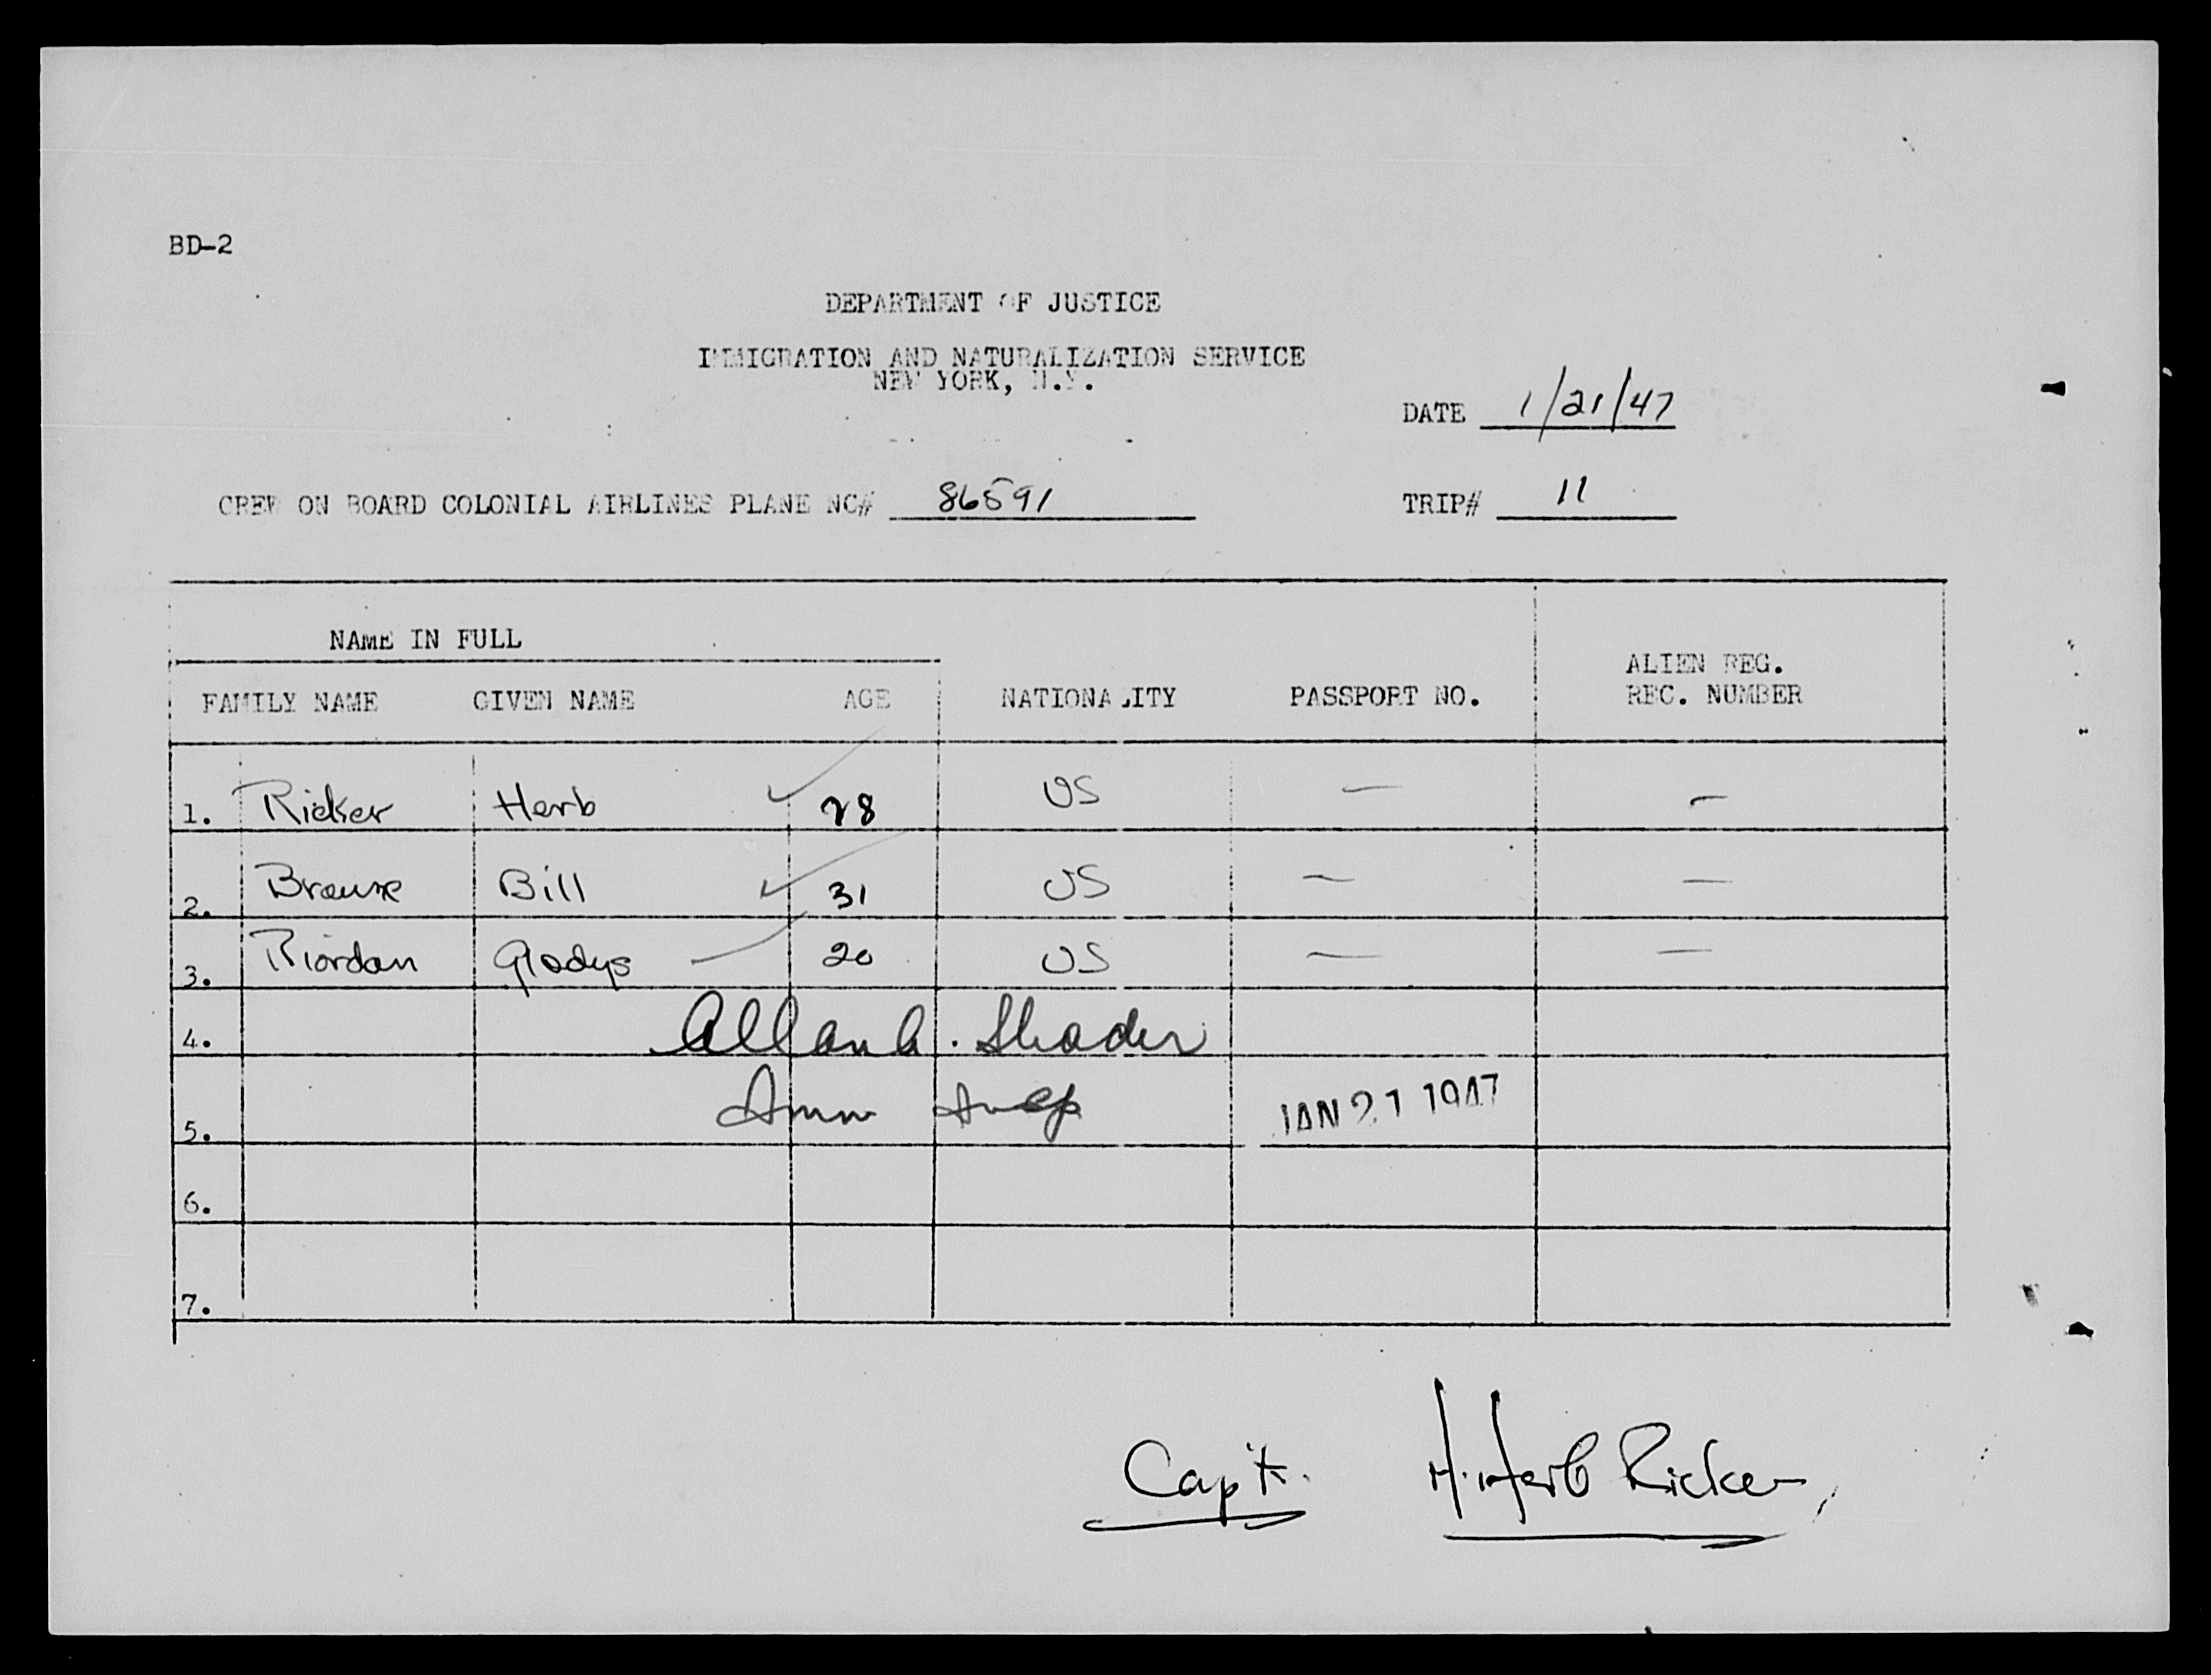 BD-2
DEPARTMENT OF JUSTICE
IMMIGRATION AND NATURALIZATION SERVICE
NEW YORK, N.Y.
DATE 1/21/47
CREW ON BOARD COLONIAL AIRLINES PLANE NC# 86591 TRIP# 11
NAME IN FULL
FAMILY NAME GIVEN NAME AGE NATIONALITY PASSPORT NO. ALIEN REG. REC. NUMBER
1. Ricker Herb 28 US — —
2. Braune Bill 31 US — —
3. Riordan Gladys 20 US — —
4. Allan A. Shader
5. Imm Insp JAN 21 1947
6.
7.
Cap't. H. Herb Ricker